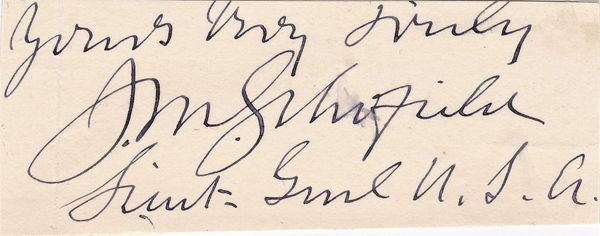 Yours Very Truly
J.M. Schofield
Lieut- Genl U.S.A.